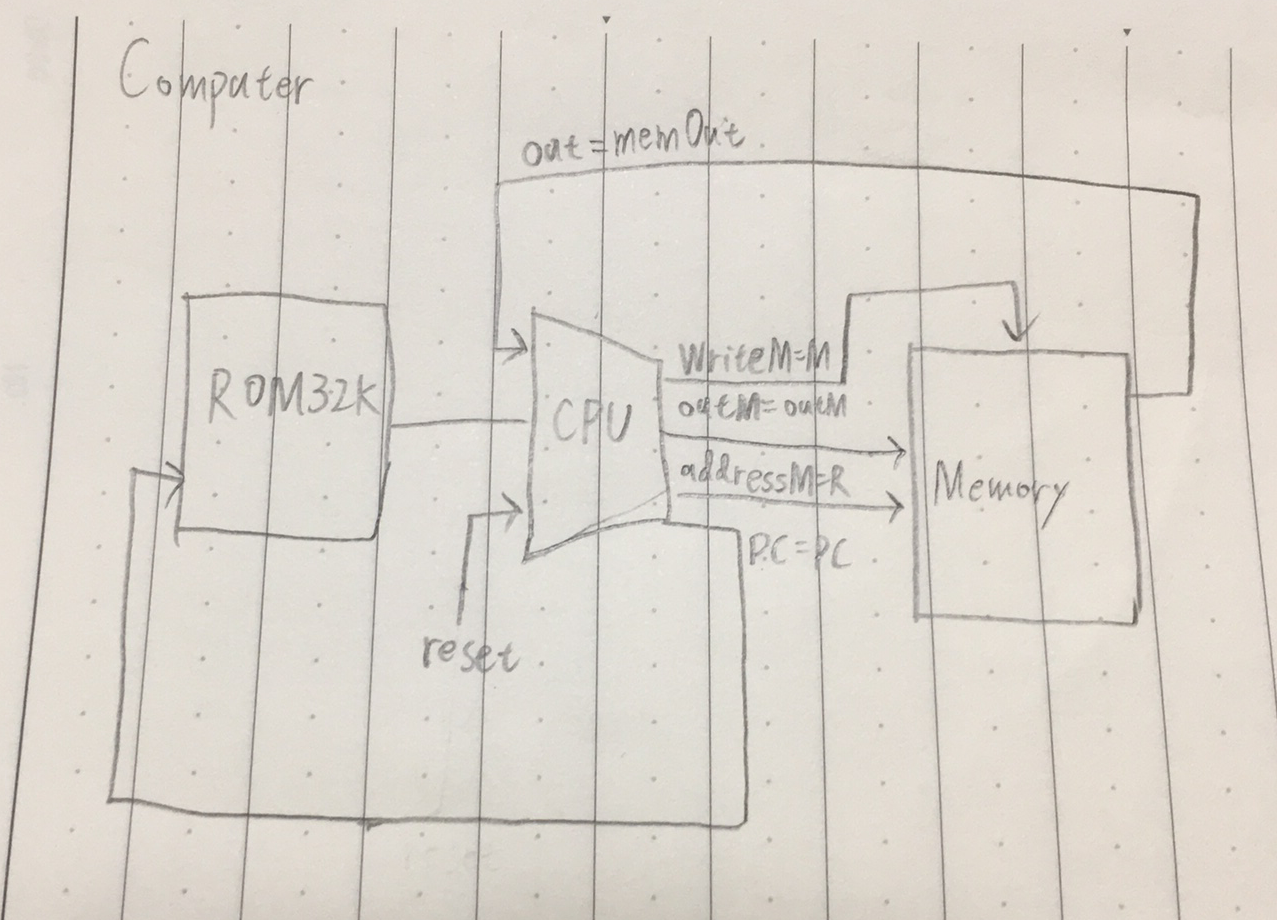 Computer
out=memOut
ROM32K
CPU
WriteM=M
outM=outM
addressM=R
Memory
PC=PC
reset